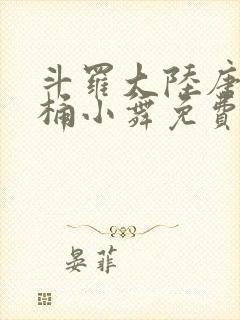 斗羅大陸唐
桶小舞免費
晏菲